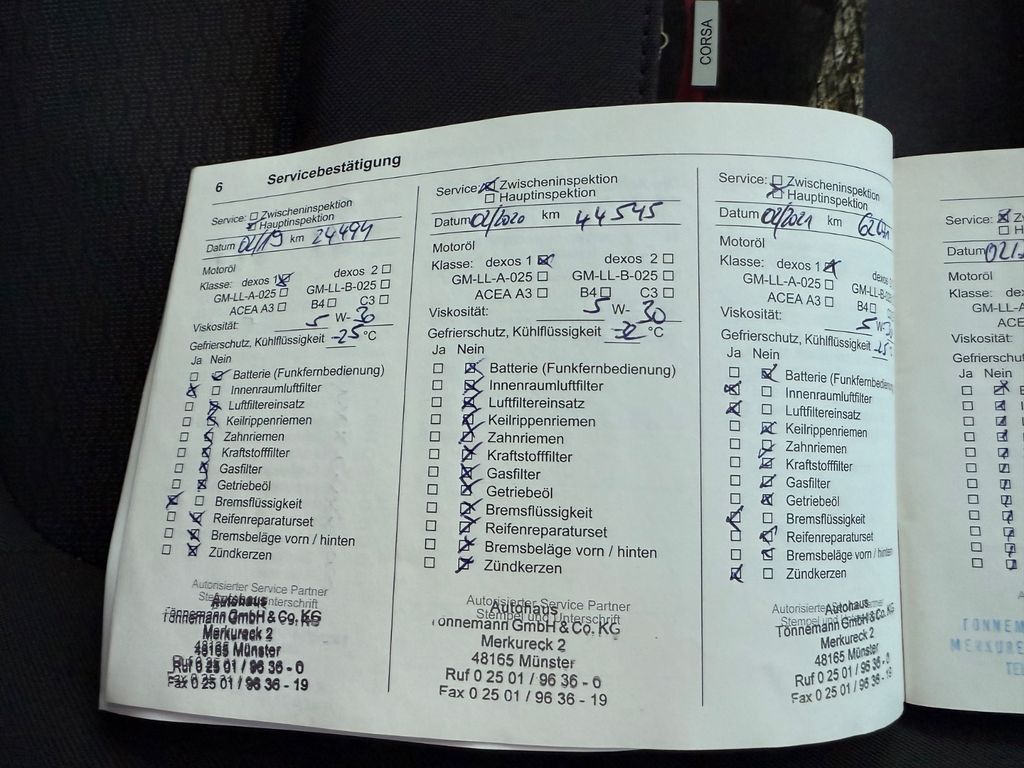 CORSA
6 Servicebestätigung
Service: Zwischeninspektion
Hauptinspektion
Datum 02/19 km 24494
Motoröl
Klasse: dexos 1 dexos 2
GM-LL-A-025 GM-LL-B-025
ACEA A3 B4 C3
Viskosität: 5 W- 30
Gefrierschutz, Kühlflüssigkeit -25 °C
Ja Nein
Batterie (Funkfernbedienung)
Innenraumluftfilter
Luftfiltereinsatz
Keilrippenriemen
Zahnriemen
Kraftstofffilter
Gasfilter
Getriebeöl
Bremsflüssigkeit
Reifenreparaturset
Bremsbeläge vorn / hinten
Zündkerzen
Autorisierter Service Partner
Stempel und Unterschrift
Autohaus
Tönnemann GmbH & Co. KG
Merkureck 2
48165 Münster
Ruf 0 25 01 / 96 36 - 0
Fax 0 25 01 / 96 36 - 19
Service: Zwischeninspektion
Hauptinspektion
Datum 02/2020 km 44545
Motoröl
Klasse: dexos 1 dexos 2
GM-LL-A-025 GM-LL-B-025
ACEA A3 B4 C3
Viskosität: 5 W- 30
Gefrierschutz, Kühlflüssigkeit °C
Ja Nein
Batterie (Funkfernbedienung)
Innenraumluftfilter
Luftfiltereinsatz
Keilrippenriemen
Zahnriemen
Kraftstofffilter
Gasfilter
Getriebeöl
Bremsflüssigkeit
Reifenreparaturset
Bremsbeläge vorn / hinten
Zündkerzen
Autorisierter Service Partner
Stempel und Unterschrift
Autohaus
Tönnemann GmbH & Co. KG
Merkureck 2
48165 Münster
Ruf 0 25 01 / 96 36 - 0
Fax 0 25 01 / 96 36 - 19
Service: Zwischeninspektion
Hauptinspektion
Datum 02/2021 km
Motoröl
Klasse: dexos 1 dexos
GM-LL-A-025 GM-LL-B-025
ACEA A3 B4
Viskosität: 5 W-
Gefrierschutz, Kühlflüssigkeit
Ja Nein
Batterie (Funkfernbedienung
Innenraumluftfilter
Luftfiltereinsatz
Keilrippenriemen
Zahnriemen
Kraftstofffilter
Gasfilter
Getriebeöl
Bremsflüssigkeit
Reifenreparaturset
Bremsbeläge vorn / hinten
Zündkerzen
Autorisierter
Stempel und
Autohaus
Tönnemann GmbH & Co. KG
Merkureck 2
48165 Münster
Ruf 0 25 01 / 96 36 - 0
Fax 0 25 01 / 96 36 - 19
Service: Z
H
Datum 02/
Motoröl
Klasse: dex
GM-LL-A
ACE
Viskosität:
Gefrierschut
Ja Nein
TÖNNEM
MERKURE
TEL